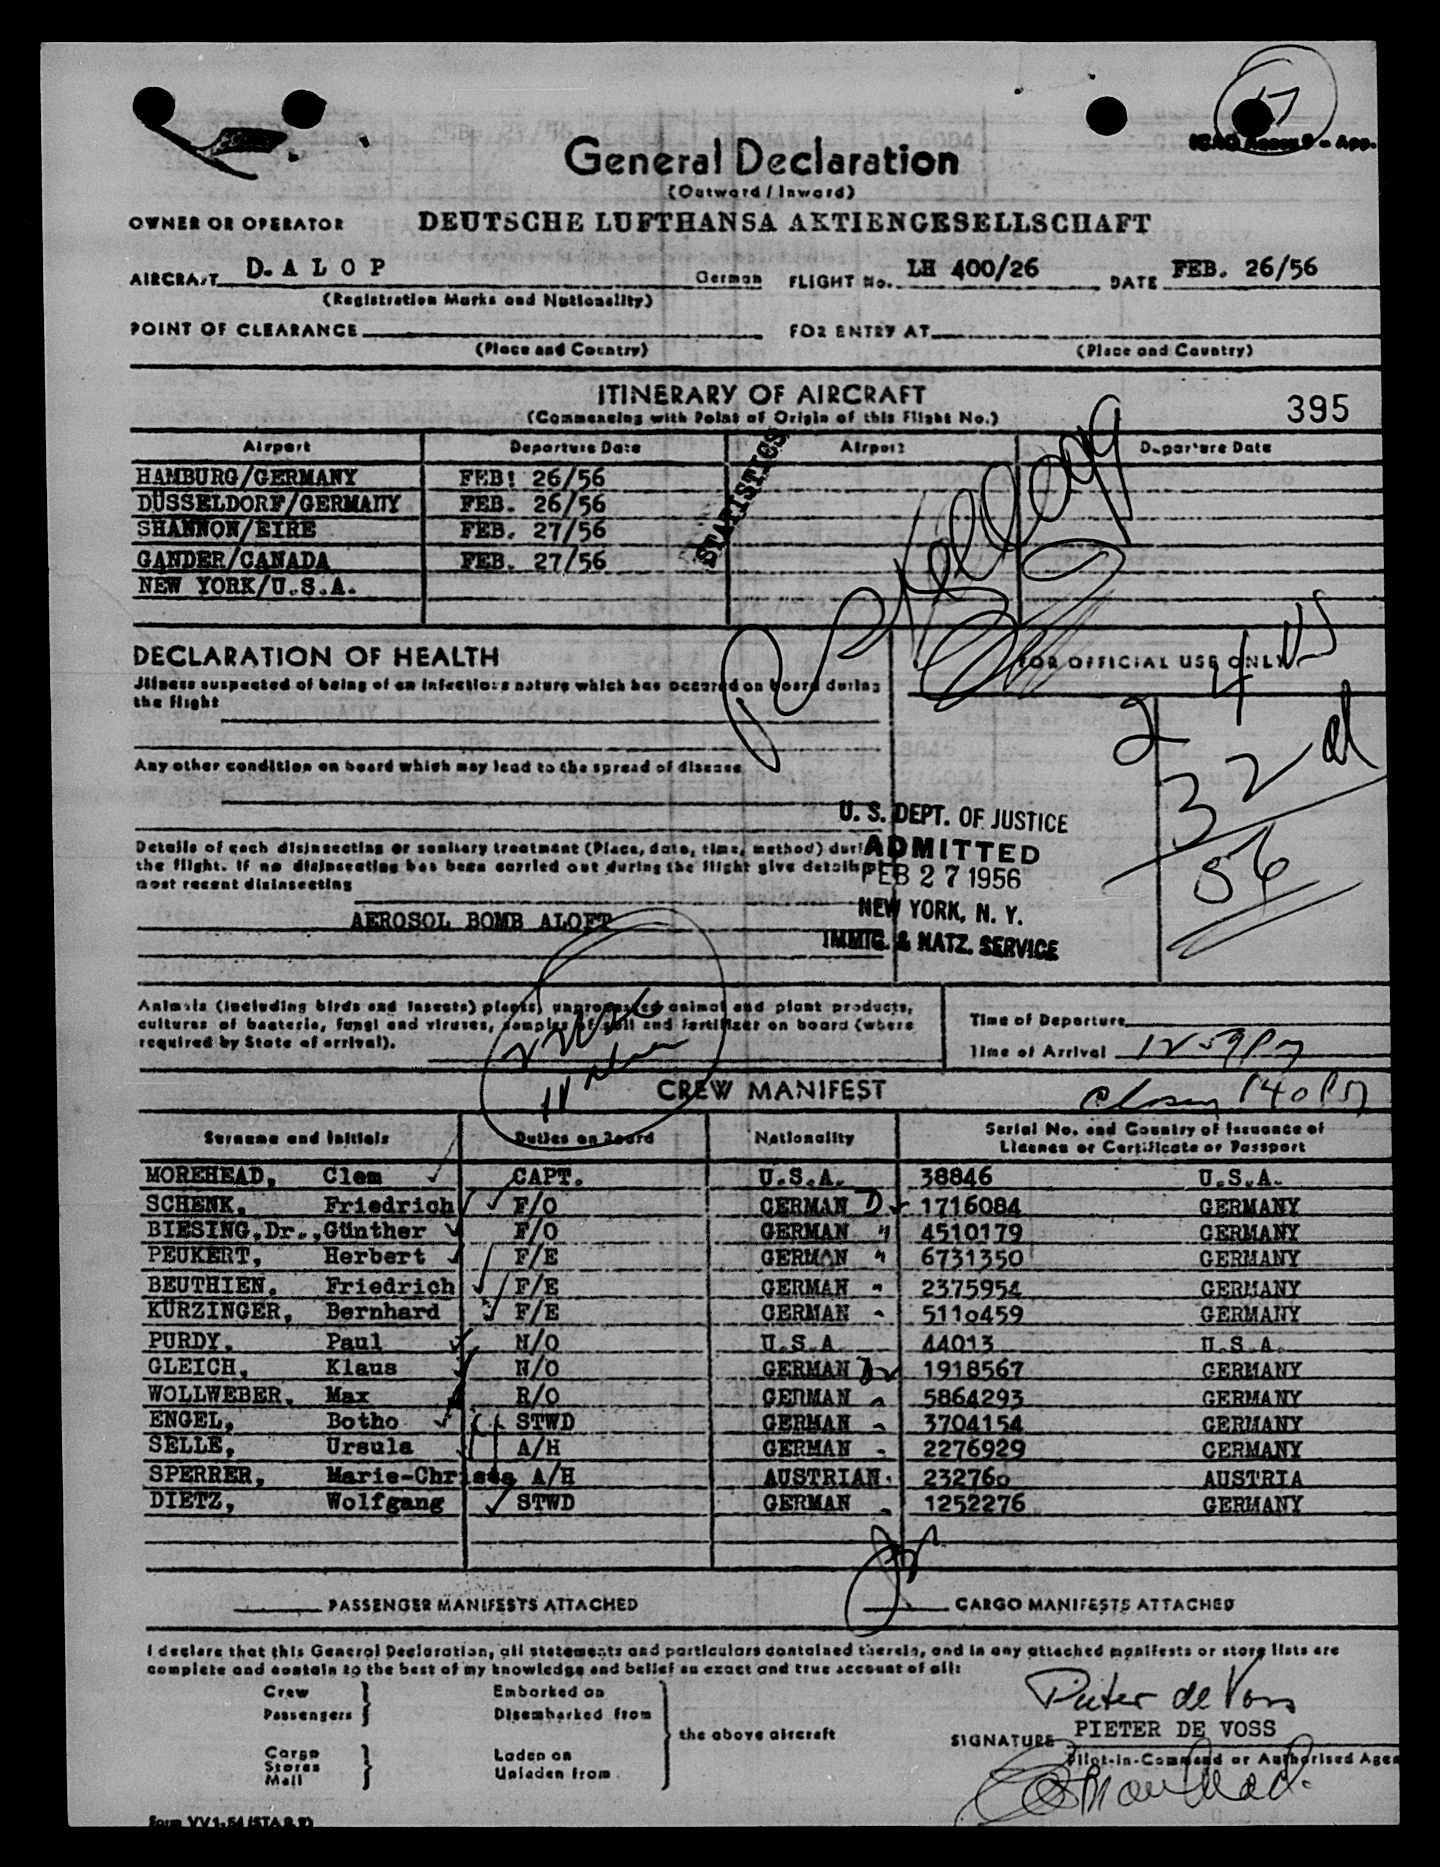 17
ICAO Annex 9 - App.
General Declaration
(Outward / Inward)
OWNER OR OPERATOR DEUTSCHE LUFTHANSA AKTIENGESELLSCHAFT
AIRCRAFT D. A L O P German FLIGHT No. LH 400/26 DATE FEB. 26/56
(Registration Marks and Nationality)
POINT OF CLEARANCE FOR ENTRY AT
(Place and Country) (Place and Country)
ITINERARY OF AIRCRAFT
(Commencing with Point of Origin of this Flight No.)
395
Airport Departure Date Airport Departure Date
HAMBURG/GERMANY FEB! 26/56
DÜSSELDORF/GERMANY FEB. 26/56
SHANNON/EIRE FEB. 27/56
GANDER/CANADA FEB. 27/56
NEW YORK/U.S.A.
STATISTICS
DECLARATION OF HEALTH
FOR OFFICIAL USE ONLY
Illness suspected of being of an infectious nature which has occured on board during
the flight
4 US
2
32 al
56
Any other condition on board which may lead to the spread of disease
U. S. DEPT. OF JUSTICE
ADMITTED
FEB 27 1956
NEW YORK, N. Y.
IMMIG. & NATZ. SERVICE
Details of each disinsecting or sanitary treatment (Place, date, time, method) duri
the flight. If no disinsecting has been carried out during the flight give details
most recent disinsecting
AEROSOL BOMB ALOFT
Animals (including birds and insects) plants, unprocessed animal and plant products,
cultures of bacteria, fungi and viruses, samples of soil and fertilizer on board (where
required by State of arrival).
Time of Departure
Time of Arrival 12 59 PM
CREW MANIFEST
Surname and Initials Duties on Board Nationality Serial No. and Country of Issuance of
License or Certificate or Passport
MOREHEAD, Clem CAPT. U.S.A. 38846 U.S.A.
SCHENK, Friedrich F/O GERMAN D 1716084 GERMANY
BIESING,Dr.,Günther F/O GERMAN " 4510179 GERMANY
PEUKERT, Herbert F/E GERMAN " 6731350 GERMANY
BEUTHIEN, Friedrich F/E GERMAN " 2375954 GERMANY
KÜRZINGER, Bernhard F/E GERMAN 5110459 GERMANY
PURDY, Paul N/O U.S.A. 44013 U.S.A.
GLEICH, Klaus N/O GERMAN D 1918567 GERMANY
WOLLWEBER, Max R/O GERMAN 5864293 GERMANY
ENGEL, Botho STWD GERMAN 3704154 GERMANY
SELLE, Ursula A/H GERMAN 2276929 GERMANY
SPERRER, Marie-Christa A/H AUSTRIAN 232760 AUSTRIA
DIETZ, Wolfgang STWD GERMAN 1252276 GERMANY
PASSENGER MANIFESTS ATTACHED CARGO MANIFESTS ATTACHED
I declare that this General Declaration, all statements and particulars contained therein, and in any attached manifests or store lists are
complete and contain to the best of my knowledge and belief an exact and true account of all:
Crew
Passengers
Embarked on
Disembarked from
the above aircraft
Cargo
Stores
Mail
Laden on
Unladen from
Pieter de Voss
SIGNATURE PIETER DE VOSS
Pilot-in-Command or Authorised Agen
Form VV 1-54 (STAR 9)